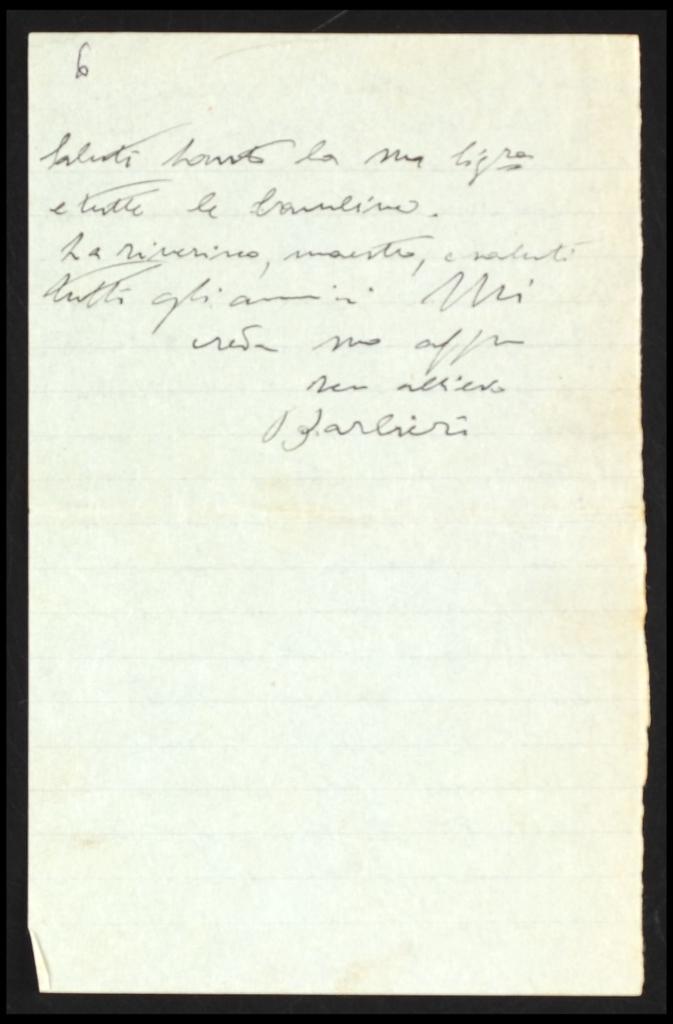 6
Saluti tanto la sua sig.ra
e tutte le bambine.
La riverisco, maestro, e saluti
tutti gli amici Mi
creda suo aff.mo
allievo
Barbieri